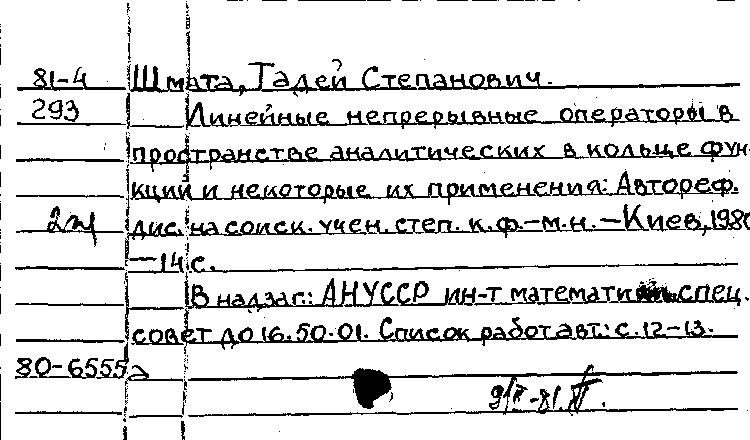 81-4 Шмата, Тадей Степанович.
293 Линейные непрерывные операторы в
пространстве аналитических в кольце фун-
кций и некоторые их применения: Автореф.
дис. на соиск. учен. степ. к.ф.-м.н. – Киев, 1980
– 14 с.
В надзаг: АНУССР ин-т математики спец.
совет Д016.50.01. Список работ авт: с. 12-13.
80-6555